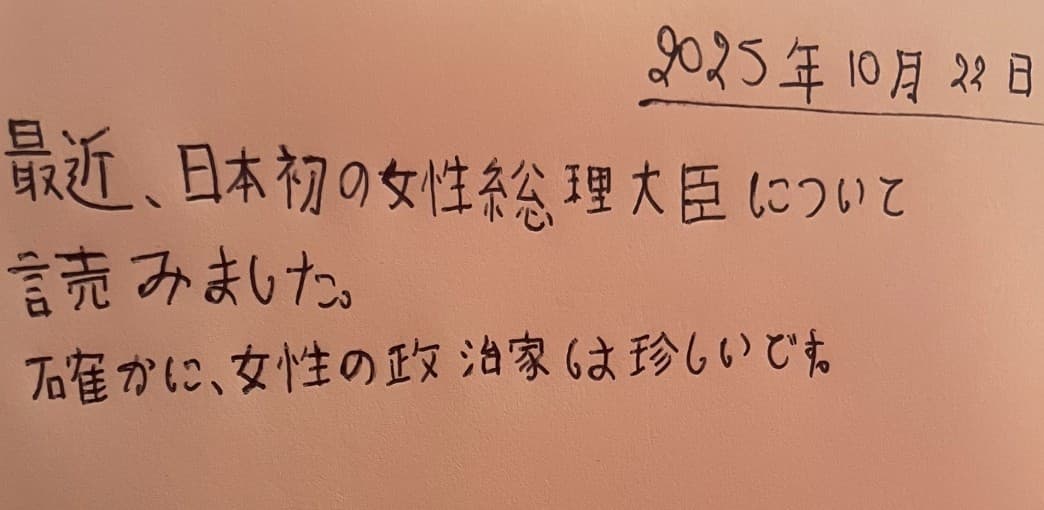 2025年10月22日
最近、日本初の女性総理大臣について
読みました。
確かに、女性の政治家は珍しいです。